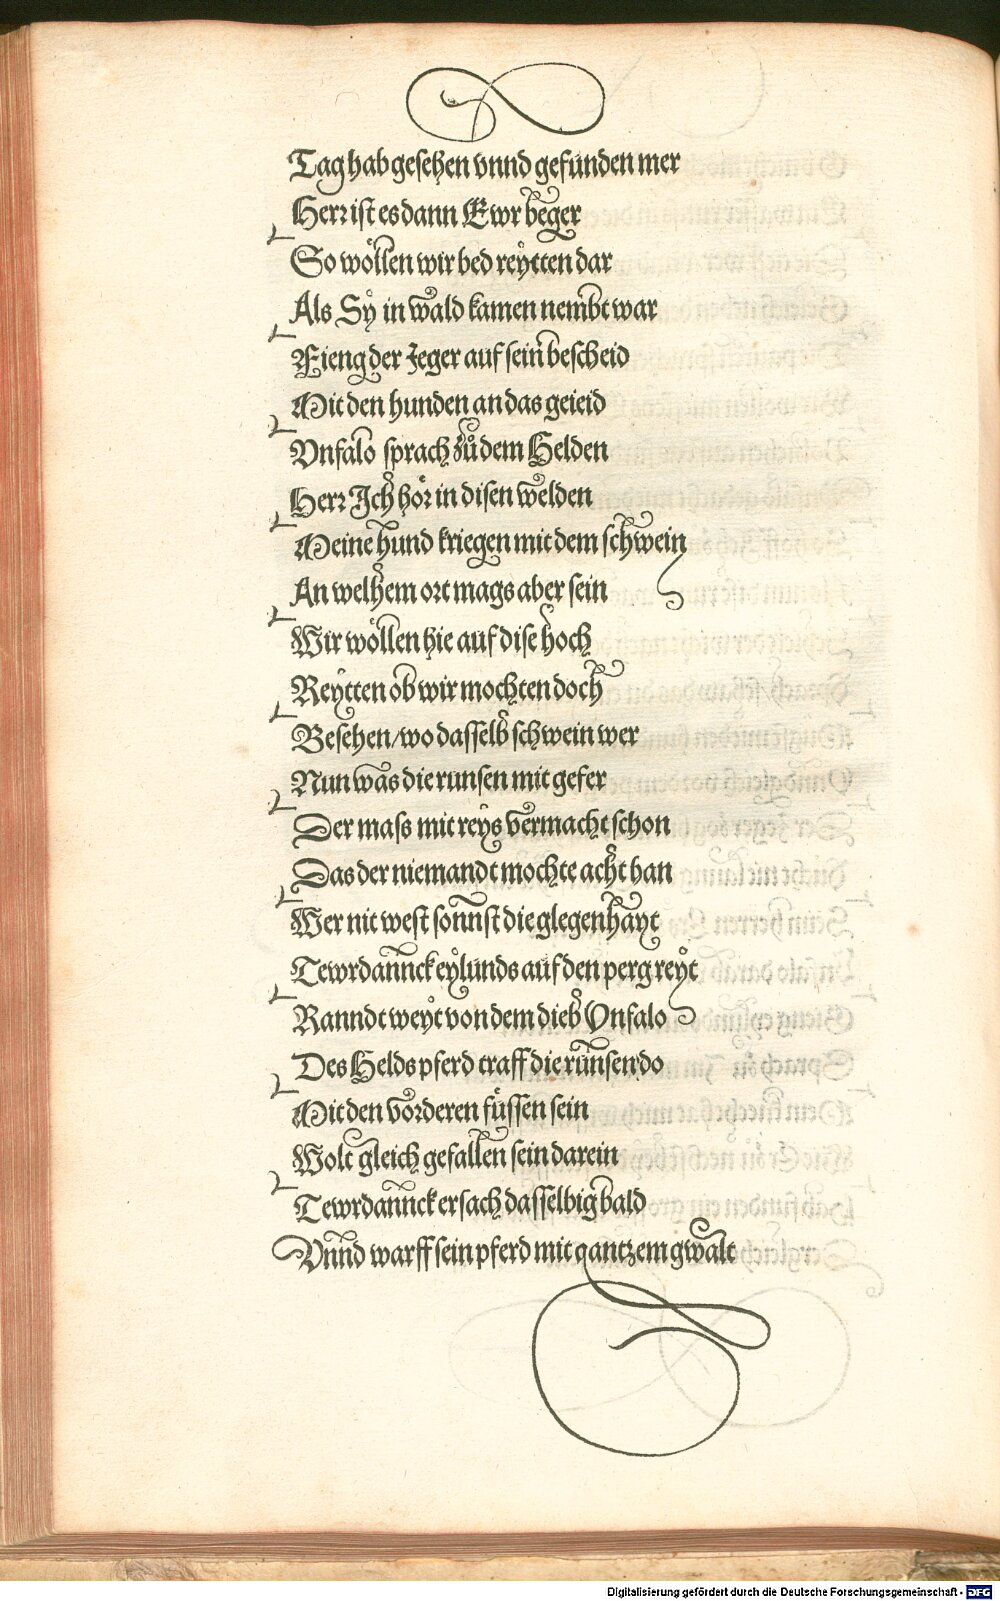 Tag hab gesehen vnnd gefunden mer
Herr ist es dann Ewr beger
So wöllen wir bed reÿtten dar
Als Sÿ in wald kamen nembt war
Fieng der Jeger auf sein bescheid
Mit den hunden an das geieid
Vnfalo sprach zů dem Helden
Herr Ich hör in disen welden
Meine hund kriegen mit dem schwein
An welhem ort mags aber sein
Wir wöllen hie auf dise hoch
Reÿtten ob wir mochten doch
Besehen/wo dasselb schwein wer
Nun was die runsen mit gefer
Der mass mit reÿs vermacht schon
Das der niemandt mochte acht han
Wer nit west sonnst die glegenhaÿt
Tewrdannck eÿlunds auf den perg reÿt
Ranndt weÿt von dem dieb Vnfalo
Des Helds pferd traff die runsen do
Mit den vorderen füssen sein
Wolt gleich gefallen sein darein
Tewrdannck ersach dasselbig bald
Vnnd warff sein pferd mit gantzem gwalt
Digitalisierung gefördert durch die Deutsche Forschungsgemeinschaft - DFG